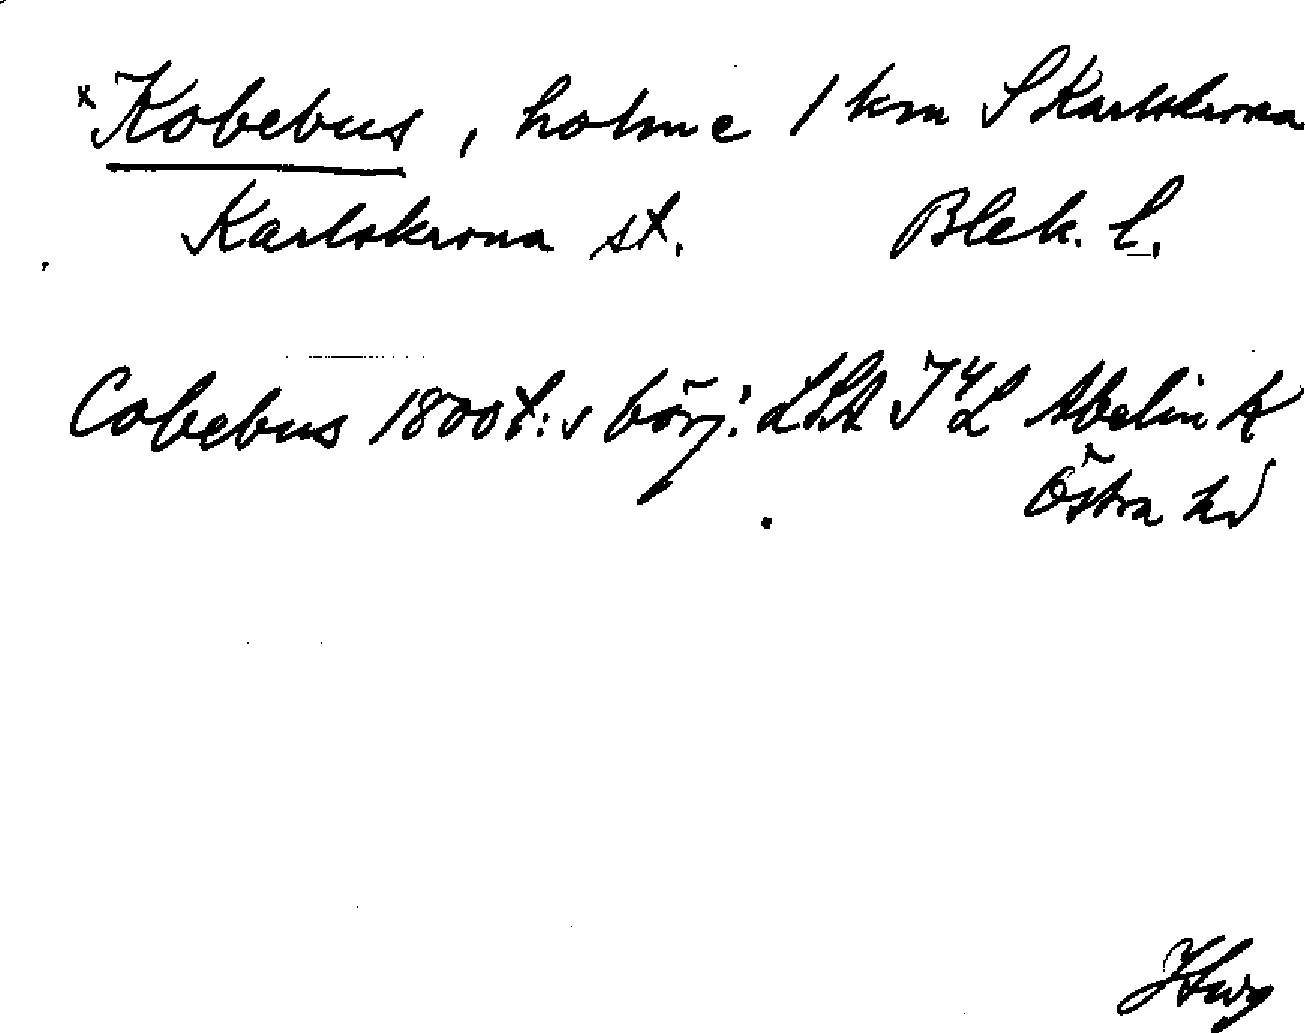 x Kobebus, holme 1 km S Karlskrona
Karlskrona st. Blek. l.
Cobebus 1800t:s börj: LSA Abelin K
Östra hd